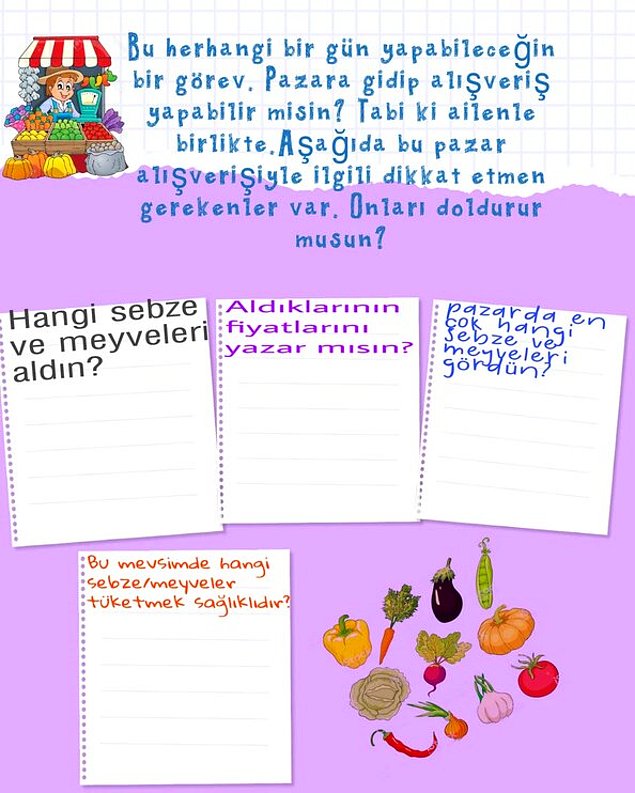 Bu herhangi bir gün yapabileceğin
bir görev. Pazara gidip alışveriş
yapabilir misin? Tabi ki ailenle
birlikte.Aşağıda bu pazar
alışverişiyle ilgili dikkat etmen
gerekenler var. Onları doldurur
musun?
Hangi sebze
ve meyveleri
aldın?
Aldıklarının
fiyatlarını
yazar mısın?
pazarda en
çok hangi
sebze ve
meyveleri
gördün?
Bu mevsimde hangi
sebze/meyveler
tüketmek sağlıklıdır?